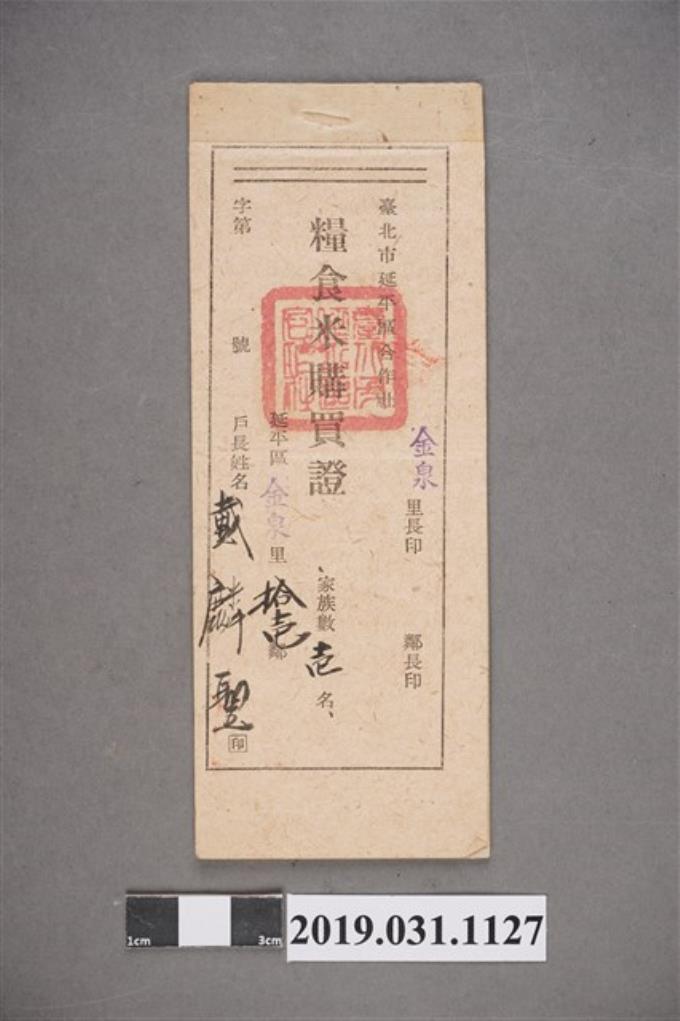 臺北市延平區合作社
金泉 里長印 鄰長印
糧食米購買證
家族數 壱 名、
延平區 金泉 里 拾壱 鄰
字第 號 戶長姓名 戴麟聖 印
1cm 3cm
2019.031.1127